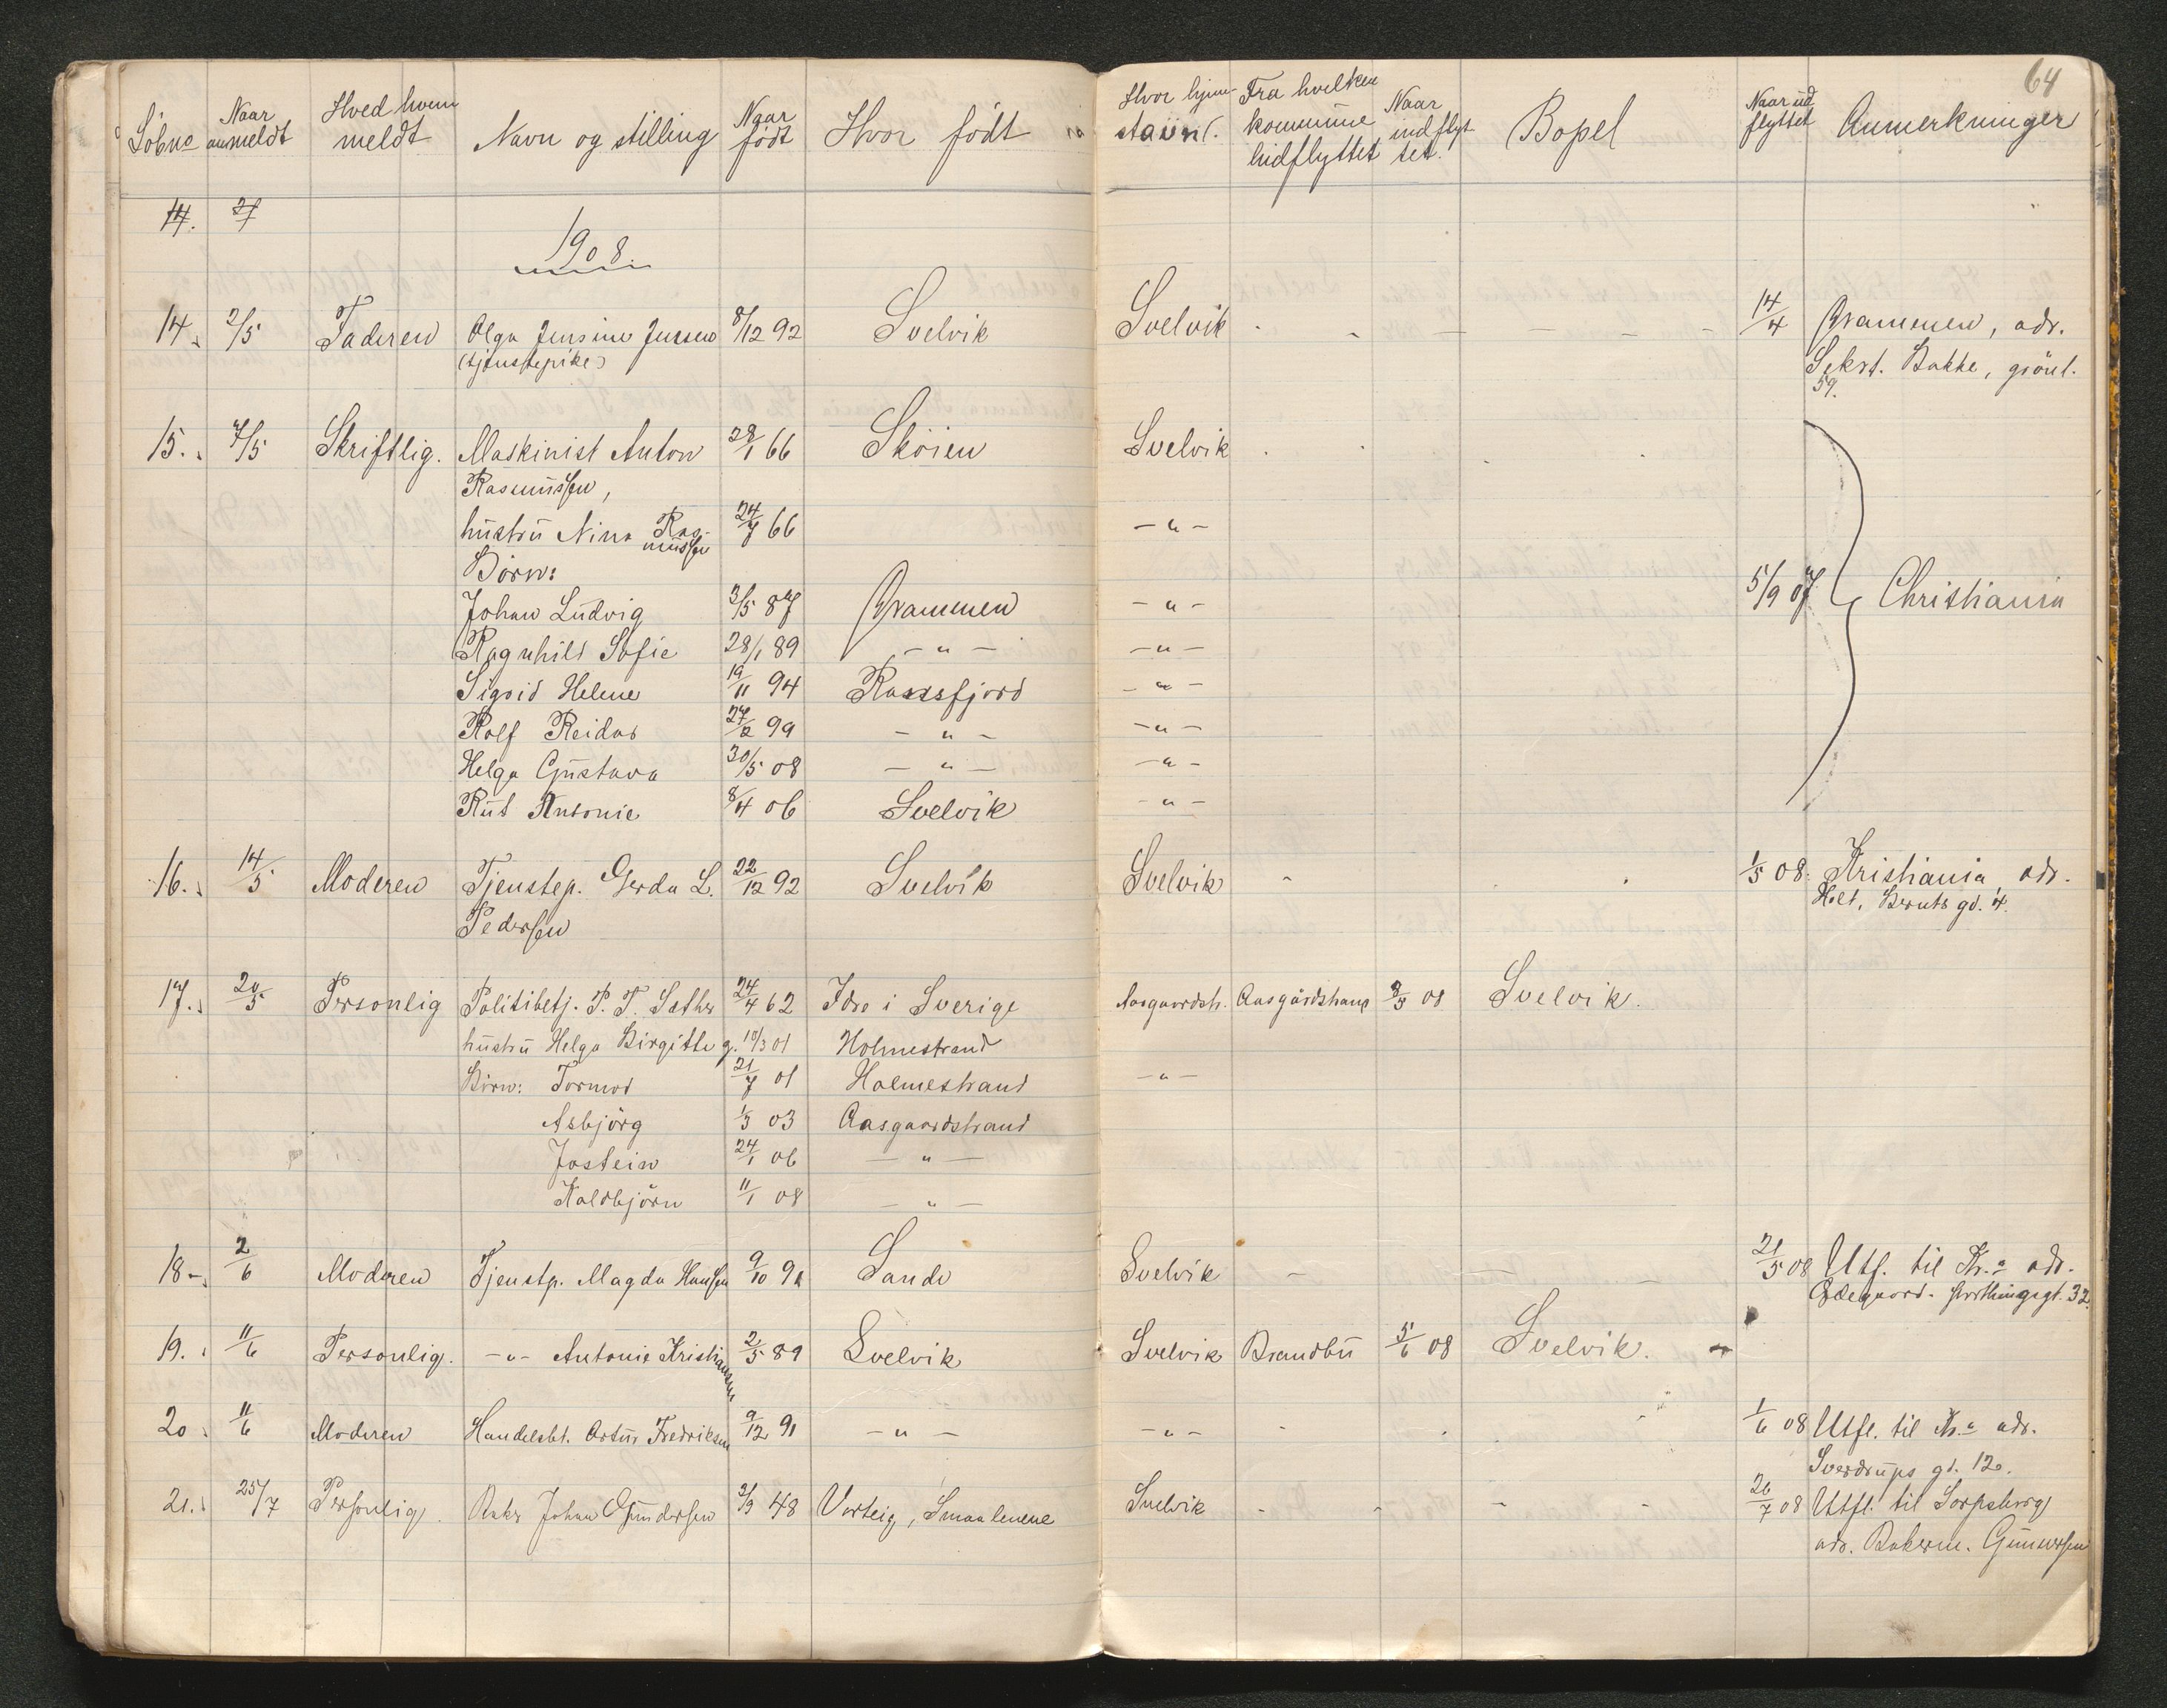 64
Löbno Naar anmeldt Hved hvem meldt Navn og stilling Naar født Hvor født Hvor hjem- Fra hvilken kommune hidflyttet Naar indflyttet. Bopel Naar udflyttet Anmerkninger
14. 2/
1908.
14. 2/5 Faderen Olga Jensine Jensen 8/12 92 Svelvik Svelvik - - - - - 14/4 Drammen, adr.
(tjenstepike) Sekst. Bakke, grönl.
59.
15. 7/5 Skriftlig. Maskinist Anton 28/1 66 Sköien Svelvik
Rasmussen,
hustru Nina Ras- 24/7 66 -"-
mussen
Börn:
Johan Ludvig 3/5 87 Drammen -"- 5/9 07 Christiania
Ragnhild Sofie 28/1 89 -"- -"-
Sigrid Helene 19/11 94 -"-
Rolf Reidar 27/2 99 -"- -"-
Helga Gustava 30/5 08 -"- -"-
Rut Antonie 8/4 06 Svelvik -"-
16. 14/5 Moderen Tjenstep. Gerda L. 22/12 92 Svelvik Svelvik - 1/5 08. Kristiania, adr.
Pedersen Holt, Bernts gd. 4.
17. 20/5 Personlig Politibetj. P. T. Sæther 24/4 62 Idre i Sverige Aasgaardstr. Aasgårdstrand 8/5 08 Svelvik.
hustru Helga Birgitte g. 10/3 01 Holmestrand
Börn: Tormod 21/7 01 Holmestrand -"-
Asbjörg 1/3 03 Aasgaardstrand
Jostein 24/1 06 -"-
Haldbjörn 11/1 08 -"-
18. 2/6 Moderen Tjenstp. Magda Hansen 9/10 91 Sande Svelvik - 21/5 08 Utf. til Kr.a adr.
Ödegaard. Storthingsgt. 32.
19. 11/6 Personlig. -"- Antonie Kristiansen 2/5 89 Svelvik Svelvik Brandbu 5/6 08 Svelvik.
20. 11/6 Moderen Handelsbt. Artur Fredriksen 9/12 91 -"- -"- - 1/6 08 Utfl. til Kr.a adr.
Sverdrups gt. 12.
21. 25/7 Personlig. Johan Gundersen 2/9 48 Varteig, Smaalenene Svelvik - - - - 26/7 08 Utfl. til Sarpsborg
adr. Bakerm. Gundersen